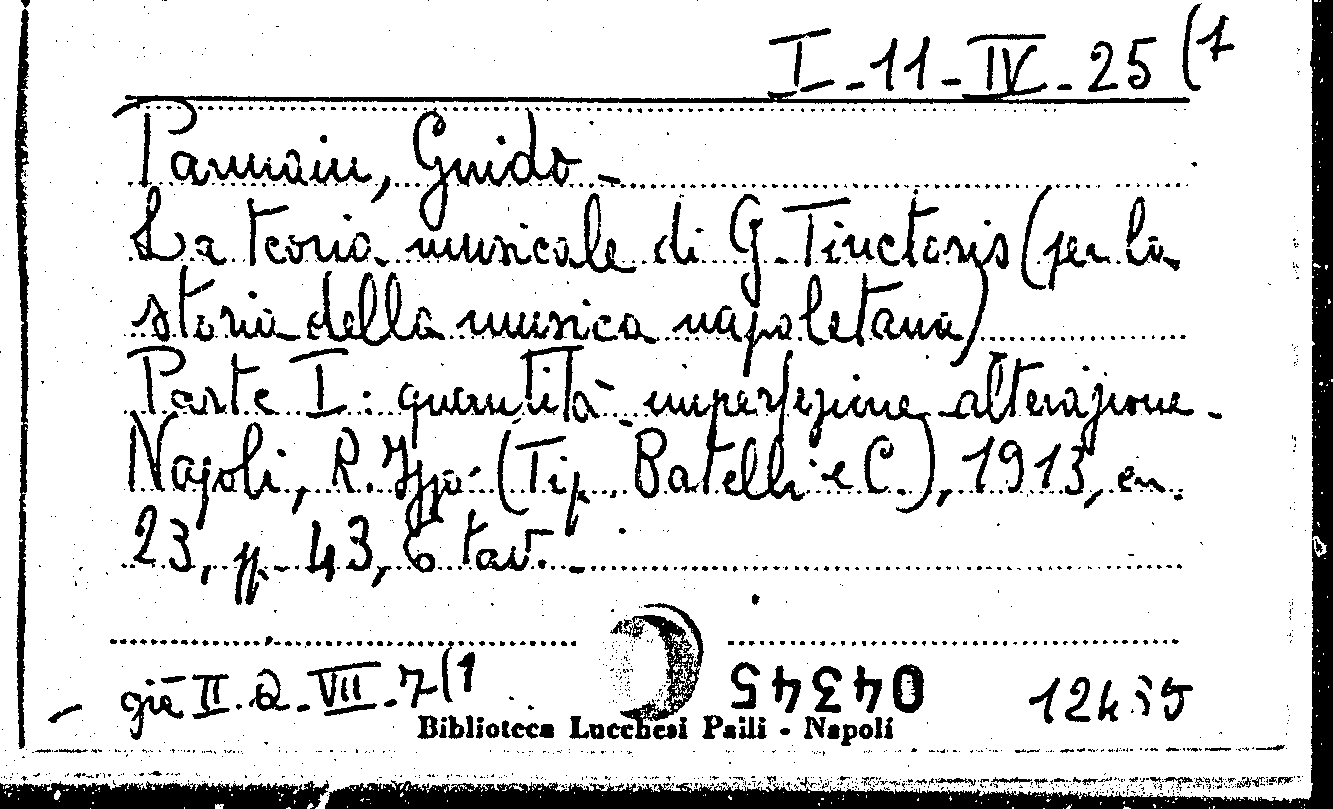 I-11-IV-25(1
Pannain, Guido -
La teoria musicale di G. Tinctoris (per la
storia della musica napoletana)
Parte I: quantità - imperfezione alterazione -
Napoli, R. Ippo. (Tip. Batelli e C.), 1913, cm.
23, pp. 43, 6 tav. -
già II.Q.VII.7(1
04345
Biblioteca Lucchesi Palli - Napoli